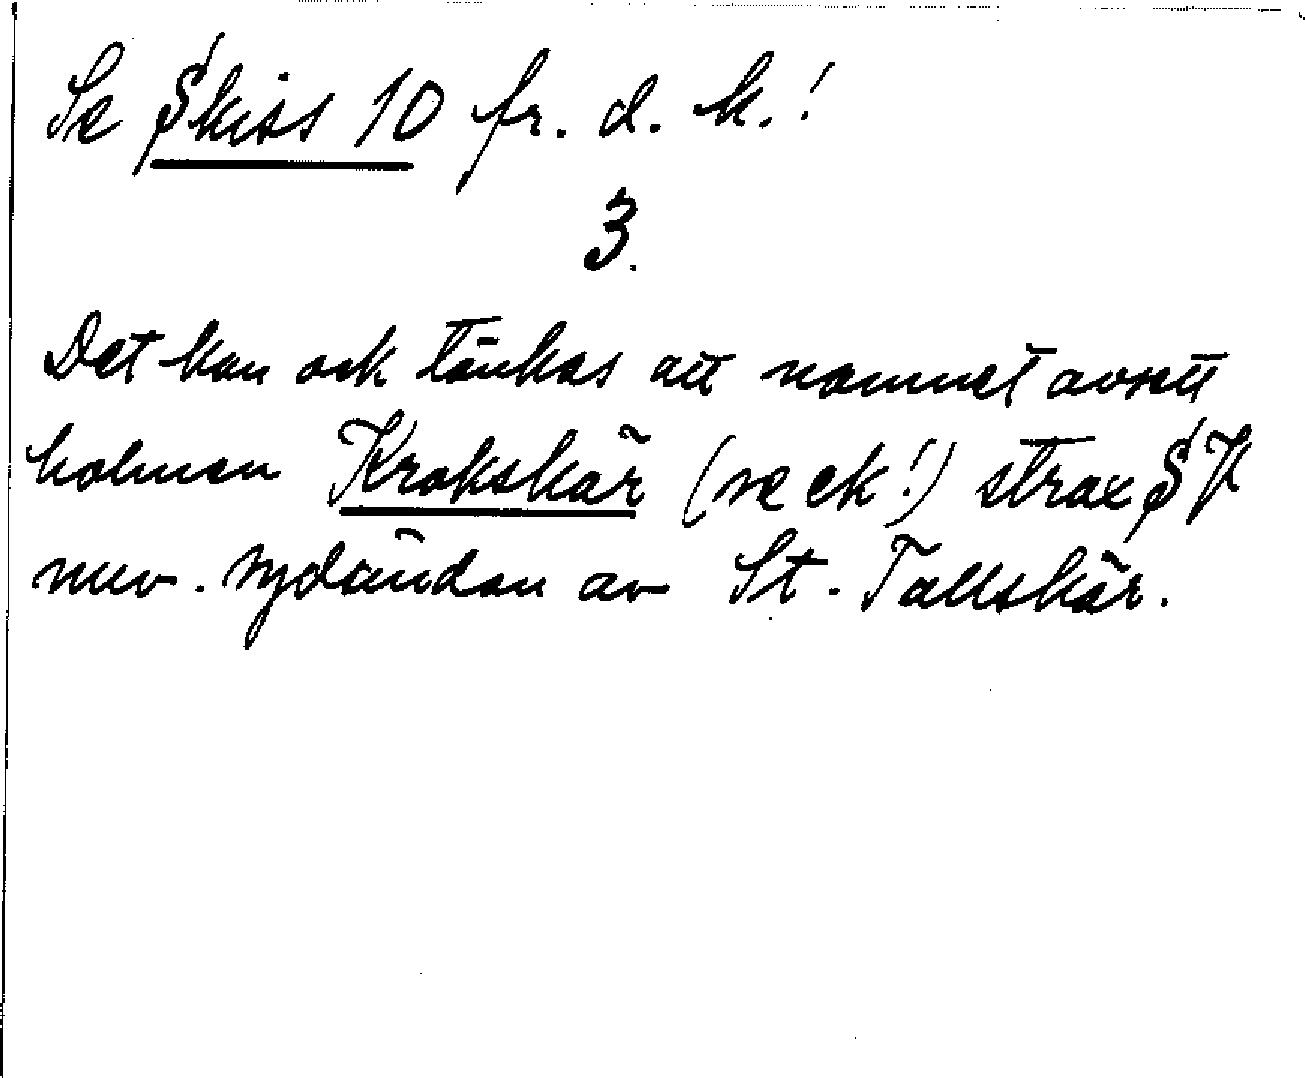 Se Skiss 10 fr. d. k.!
3.
Det kan ock tänkas att namnet avsett
holmen Krokskär (se ek!) strax S V
nuv. sydändan av St. Tallskär.